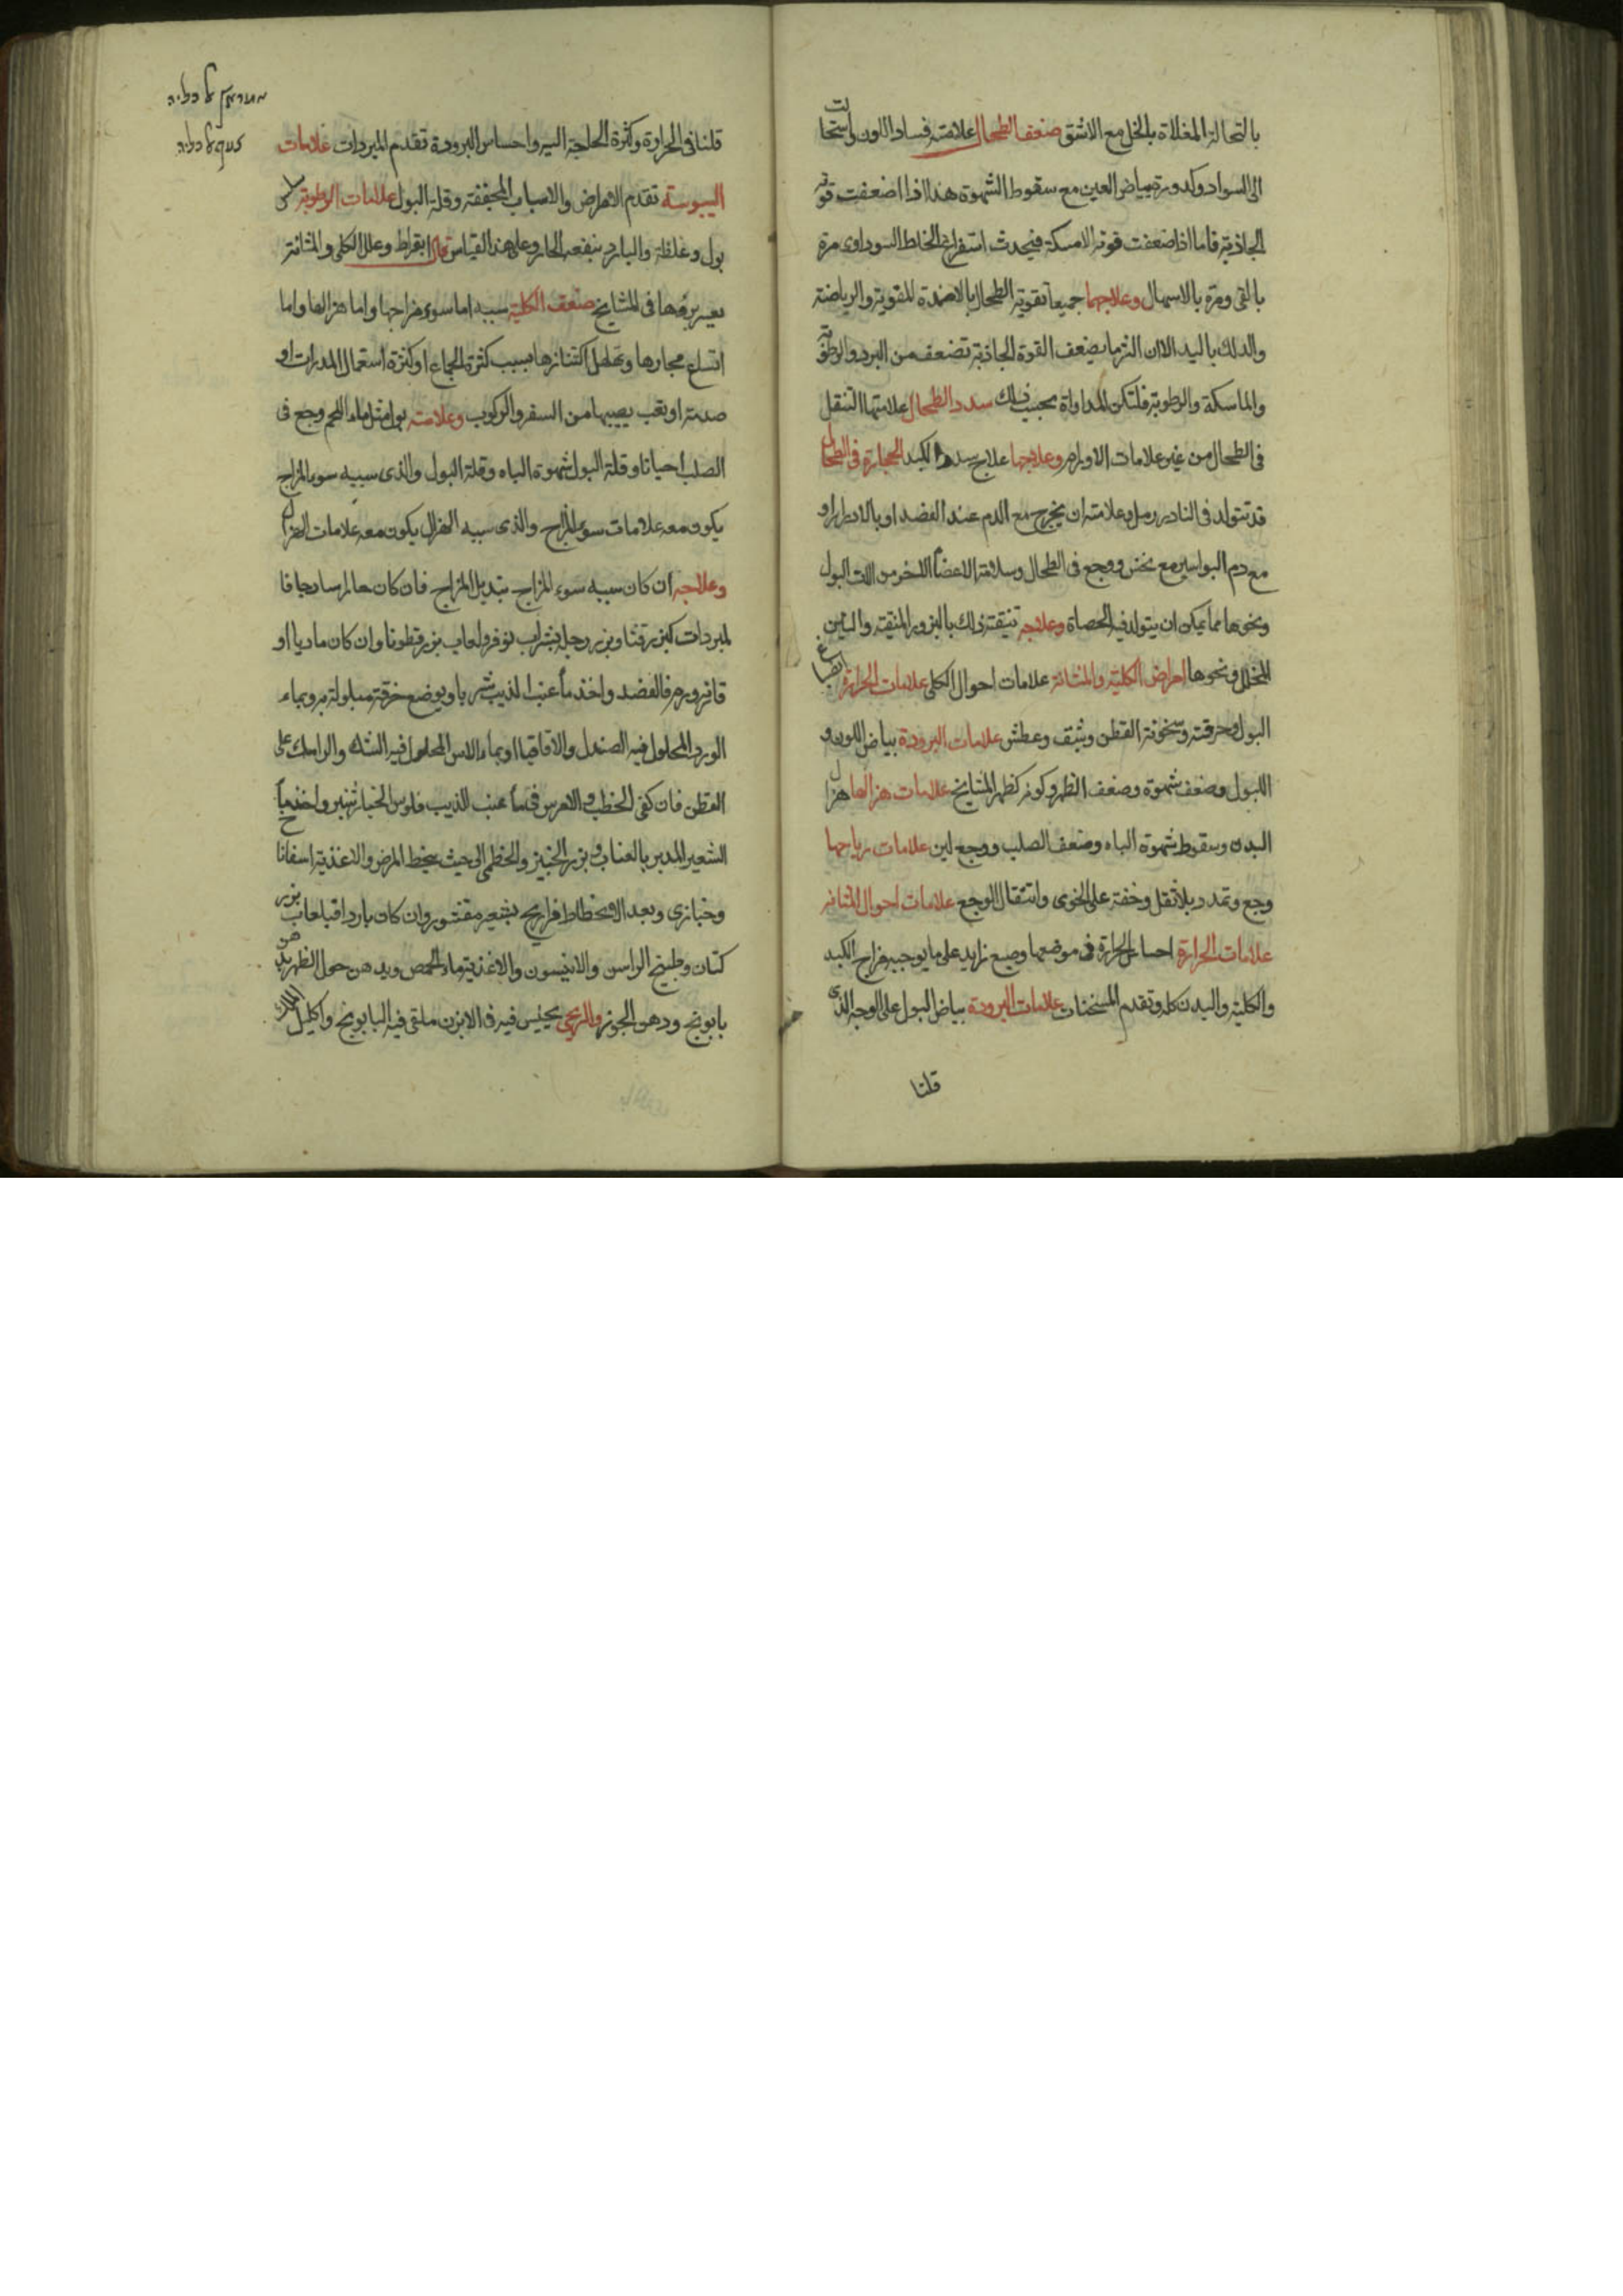 بالنخالة المغلاة بالخل مع الاشق ضعف الطحال علامته فساد اللون واستحالت
الى السواد وكدورة بياض العين مع سقوط الشهوة هذا اذا ضعفت قوته
الجاذبة فاما اذا ضعفت قوته الامسكة فيحدث استفراغ الخلط السوداوى مرة
بالقى ومرة بالاسهال وعلاجهما جميعا تقوية الطحال بالاضمدة المقوية والرياضة
والدلك باليد الا ان القوة الجاذبة تضعف من البرد والرطوبة
والماسكة والرطوبة فلتكن المداواة بحسب ذلك سدد الطحال علامتها الثقل
فى الطحال من غير علامات الاورام وعلاجها علاج سدد الكبد الحجارة فى الطحال
قد تتولد فى النادر رمل وعلامته ان يخرج مع الدم عند الفصد او بالادرار او
مع دم البواسير مع نخس ووجع فى الطحال وسلامة الاعضاء الاخر من الات البول
ونحوها مما يمكن ان يتولد فيه الحصاة وعلاجه تنقية ذلك بالبزور المنقية والتين
المخلل ونحوها امراض الكلية والمثانة علامات احوال الكلى علامات الحرارة انصباغ
البول وحرقته وسخونة القطن وشبق وعطش علامات البرودة بياض اللون و
البول وضعف شهوة وضعف الظهر وكونه كظهر المشايخ علامات هزالها هزال
البدن وسقوط شهوة الباه وضعف الصلب ووجع لين علامات رياحها
وجع وتمدد بلا ثقل وخفة على الخوى وانتقال الوجع علامات احوال المثانة
علامات الحرارة احساس الحرارة فى موضعها وصبغ زايد على ما يوجبه مزاج الكبد
والكلية والبدن كله وتقدم المسخنات علامات البرودة بياض البول على الوجه الذى
قلنا
قلنا فى الحرارة وكثرة الحاجة اليه واحساس البرودة تقدم المبردات علامات
اليبوسة تقدم الامراض والاسباب المجففة وقلة البول علامات الرطوبة
بول وغلظه والبارد ينفعه الحار وعلى هذا القياس قال ابقراط وعلل الكلى والمثانة
يعسر برؤها فى المشايخ ضعف الكلية سببه اما سوء مزاجها واما هزالها واما
اتساع مجاريها وتهلهل اكتنازها بسبب كثرة الجماع او كثرة استعمال المدرات او
صدمة او تعب يصيبها من السفر والركوب وعلامته بول مثل ماء اللحم وجع فى
الصلب احيانا وقلة البول شهوة الباه وقلة البول والذى سببه سوء المزاج
يكون معه علامات سوء المزاج والذى سببه الهزال يكون معه علامات الهزال
وعلاجه ان كان سببه سوء المزاج بتبديل المزاج فان كان حارا ساذجا فا
لمبردات كبزر قثا وبزر رجلة بشراب نوفر ولعاب بزر قطونا وان كان ماديا او
فالفصد واخذ ماء عنب الذيب شربا ويوضع خرقة مبلولة بماء
الورد المحلول فيه الصندل والاقاقيا او بماء الاس المحلول فيه السك والرامك على
القطن فان كفى فى ماء عنب الذيب فلوس الخيار شنبر واخذ ماء
الشعير المدبر بالعناب وبزر الخبيز والخطمى الى حيث ينحط المرض والاغذية اسفاناخ
وخبازى وبعد الانحطاط فراريج بشعير مقشور وان كان باردا فبلعاب بزر
كتان وطبيخ الراسن والانيسون والاغذية ماء الحمص ويدهن حول الظهر بدهن
بابونج ودهن الجوز والريحى يجلس فيه فى الابزن ملقى فيه البابونج واكليل الملك